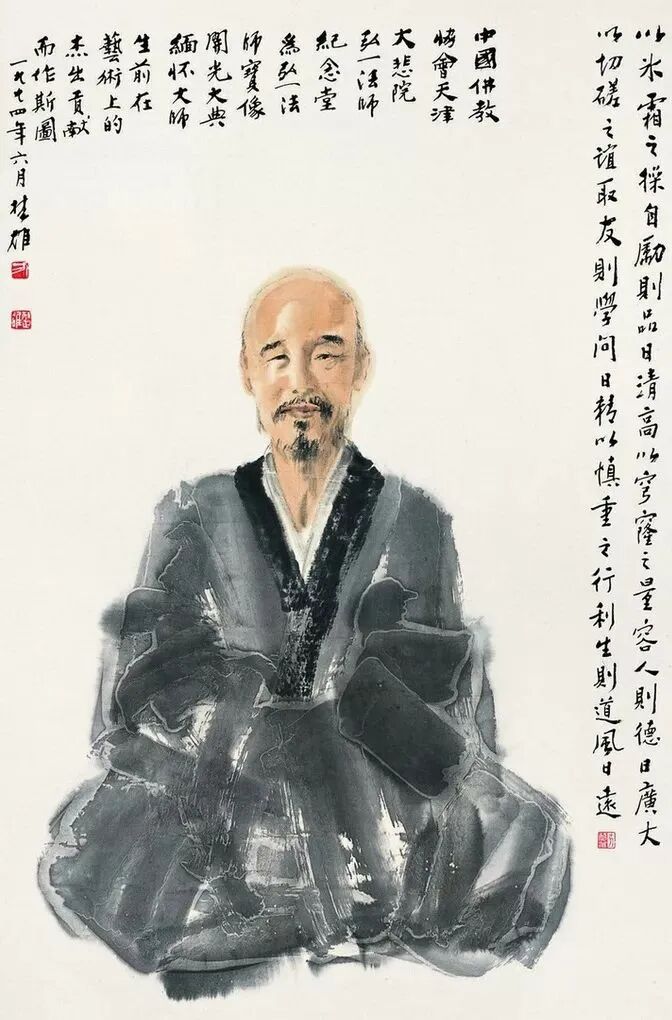 以氷霜之操自勵則品日清高以穹窿之量容人則德日廣大
以切磋之誼取友則學問日精以慎重之行利生則道風日遠
中國佛教
協會天津
大悲院
弘一法師
紀念堂
爲弘一法
師寶像
開光大典
緬懷大師
生前在
藝術上的
杰出貢獻
而作斯圖
一九九四年六月